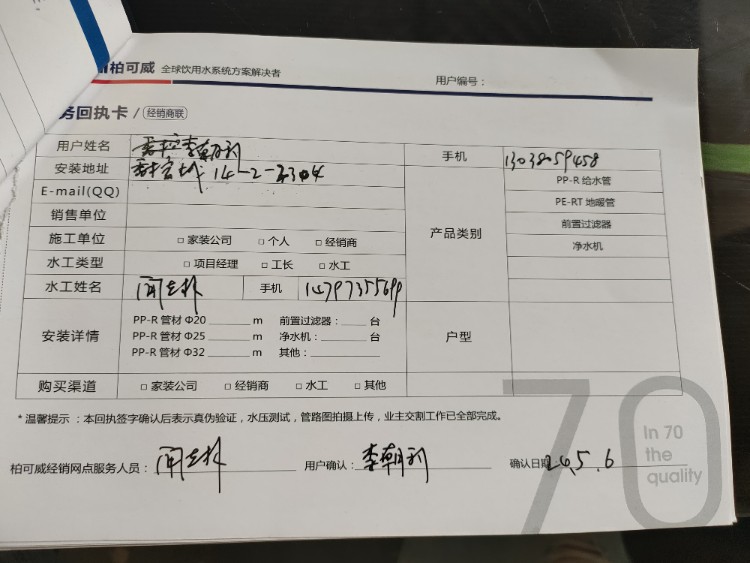 柏可威 全球饮用水系统方案解决者
用户编号：
务回执卡 / 经销商联
用户姓名 李朝利 手机 13038059458
安装地址 14-2-2304
E-mail(QQ)
销售单位
施工单位 □ 家装公司 □ 个人 □ 经销商
水工类型 □ 项目经理 □ 工长 □ 水工
水工姓名 手机
产品类别
PP-R 给水管
PE-RT 地暖管
前置过滤器
净水机
安装详情
PP-R 管材 Φ20 ______ m 前置过滤器：____ 台
PP-R 管材 Φ25 ______ m 净水机：____ 台
PP-R 管材 Φ32 ______ m 其他：______
户型
购买渠道 □ 家装公司 □ 经销商 □ 水工 □ 其他
* 温馨提示：本回执签字确认后表示真伪验证，水压测试，管路图拍摄上传，业主交割工作已全部完成。
柏可威经销网点服务人员： 用户确认：李朝利 确认日期 24.5.6
70
In 70
the
quality